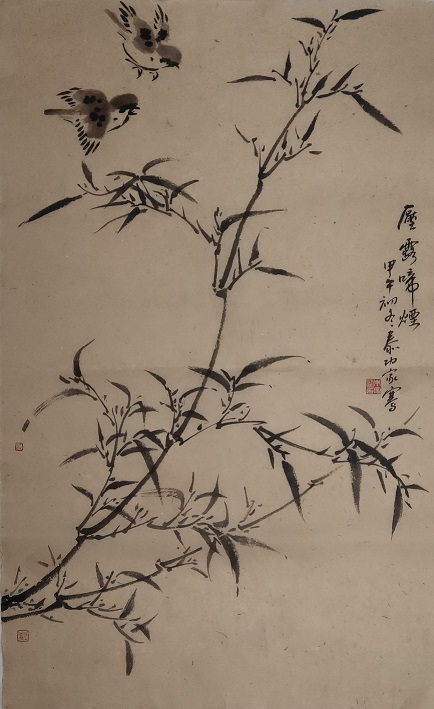 壓露啼煙
甲午初冬泰功家寫